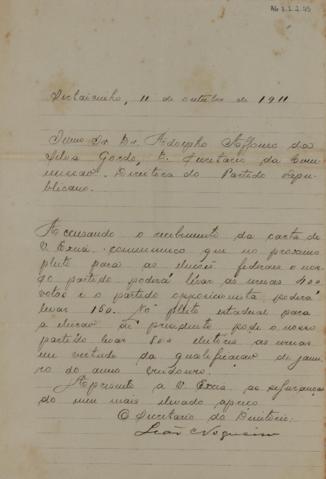 AG 1.1.2.95
11 de outubro de 1911
Illmo Sr. Dr. Adolpho Affonso da
Silva Gordo, D. Secretario da Com-
missão Directora do Partido Repu-
blicano.
Accusando o recebimento da carta de
V. Excia. communico que no proximo
pleito para as eleições federaes o nos-
so partido poderá levar ás urnas 400
votos e o partido opposicionista poderá
levar 160. No pleito estadual para
a eleição de presidente pode o nosso
partido levar 500 eleitores ás urnas
em virtude da qualificação de janei-
ro do anno vindouro.
Apresento a V. Excia. as seguranças
do meu mais elevado apreço
O Secretario do Directorio:
Leão Nogueira